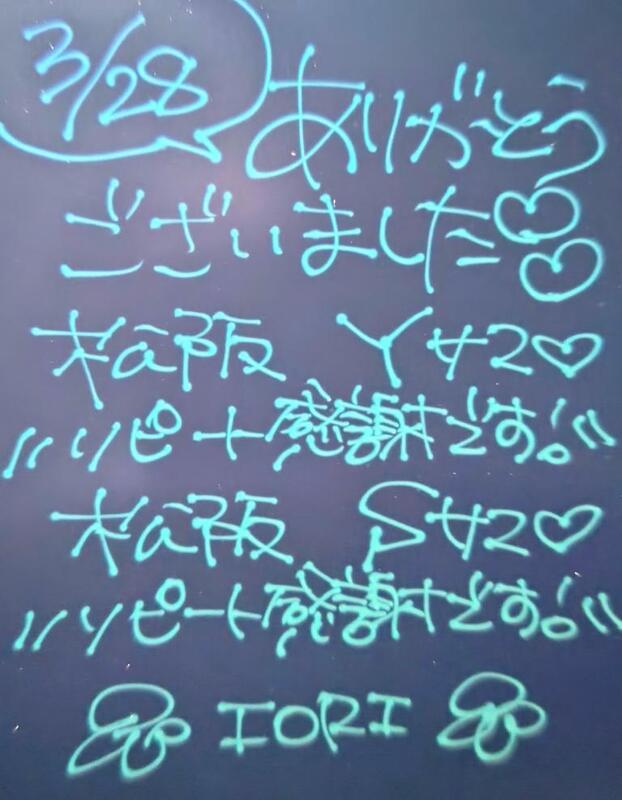 3/28
ありがとう
ございました♡♡
松阪 Y様♡
〃リピート感謝です!〃
松阪 S様♡
〃リピート感謝です!〃
IORI